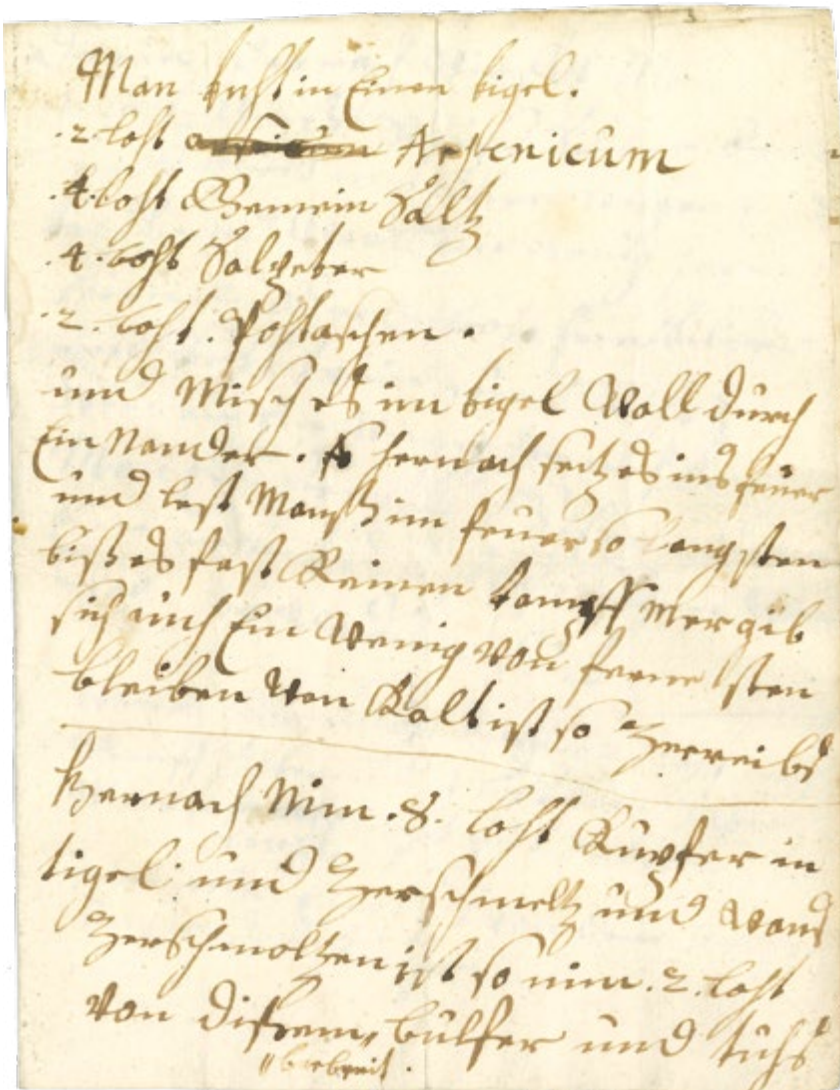 Man duhst in Einen tigel.
.2. loht Arsenicum
.4. loht Gemein Saltz
.4. loht Salpeter
.2. loht. Pohtaschen.
und Misch es im tigel Woll durch
Ein Nander. hernach setz es ins feuer
und lest Manß im feuer so lang sten
biß es fast Keinen dampff mer gib
sich auch Ein Wenig von ferne sten
bleiben Wen Kalt ist so Zerreibs
hernach Nim .8. loht Kupfer in
tigel und Zerschmeltz und Wans
Zerschmoltzen ist so nim .2. loht
von dissem bulfer und tuhs